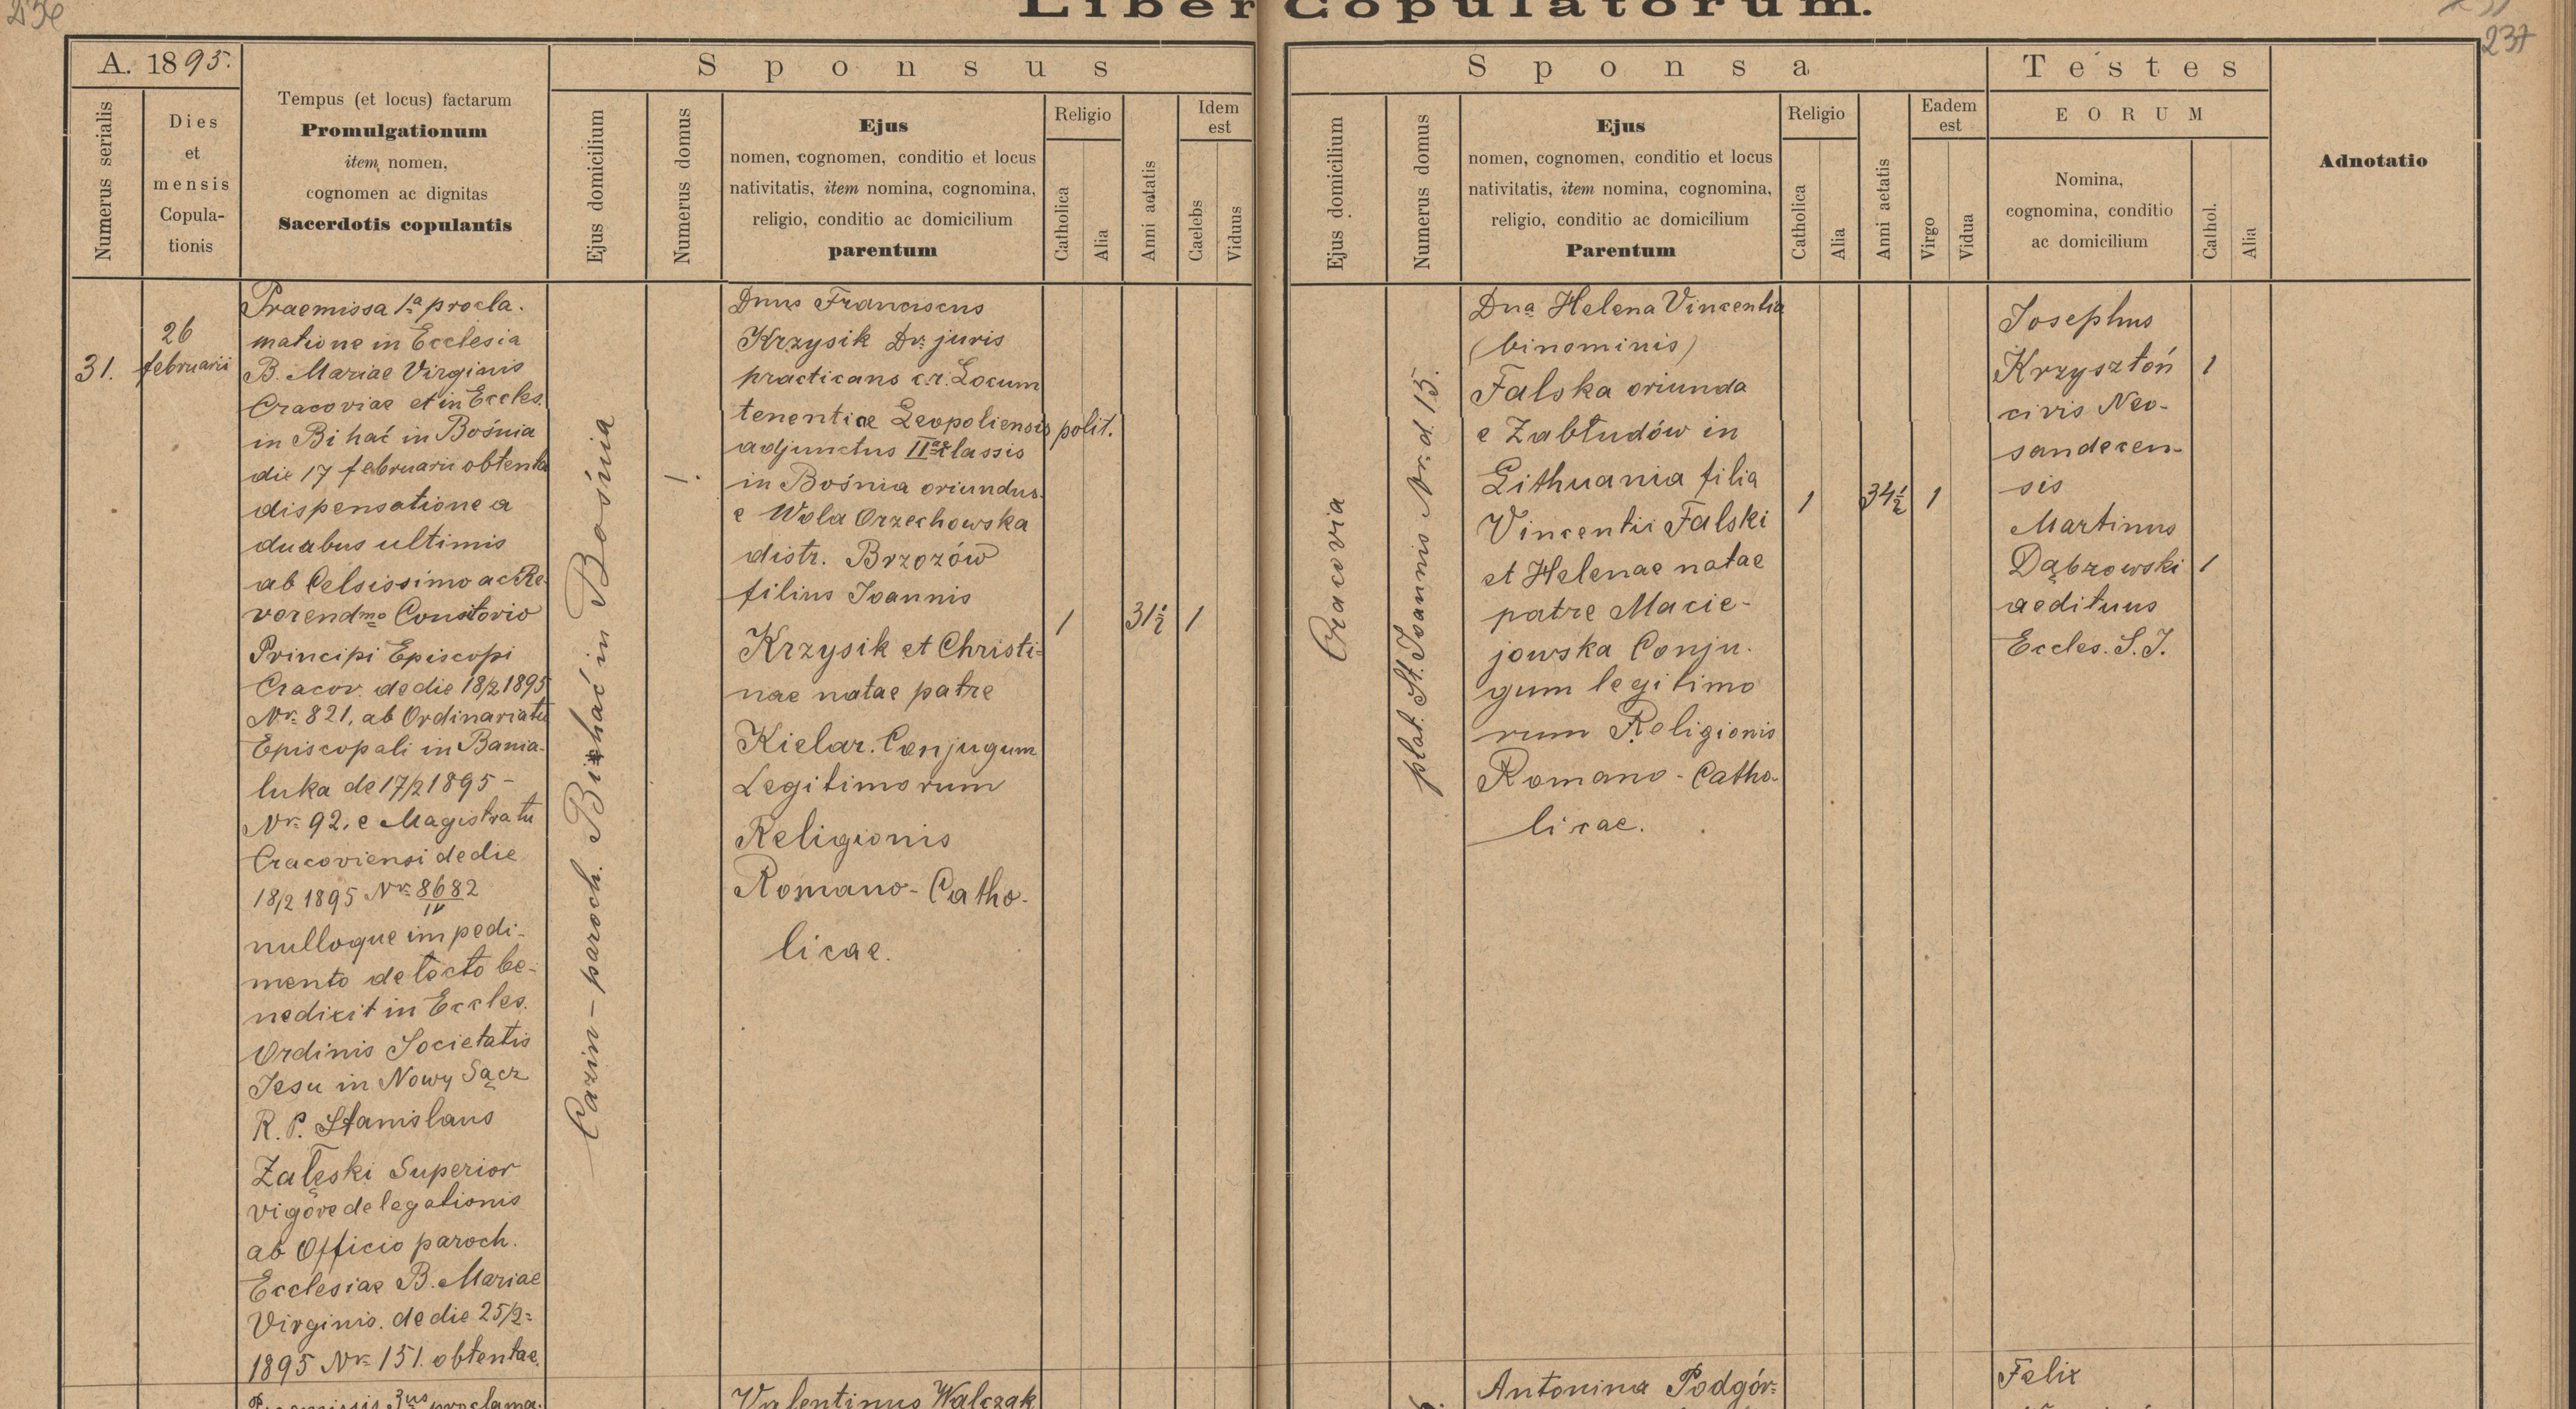 236
Liber Copulatorum.
237
A. 1895.
Numerus serialis
Dies
et
mensis
Copula-
tionis
Tempus (et locus) factarum
Promulgationum
item, nomen,
cognomen ac dignitas
Sacerdotis copulantis
Sponsus
Ejus domicilium
Numerus domus
Ejus
nomen, cognomen, conditio et locus
nativitatis, item nomina, cognomina,
religio, conditio ac domicilium
parentum
Religio
Catholica
Alia
Anni aetatis
Idem
est
Caelebs
Viduus
Sponsa
Ejus domicilium
Numerus domus
Ejus
nomen, cognomen, conditio et locus
nativitatis, item nomina, cognomina,
religio, conditio ac domicilium
Parentum
Religio
Catholica
Alia
Anni aetatis
Eadem
est
Virgo
Vidua
Testes
EORUM
Nomina,
cognomina, conditio
ac domicilium
Cathol.
Alia
Adnotatio
31.
26
februarii
Praemissa 1a procla-
matione in Ecclesia
B. Mariae Virginis
Cracoviae et in Eccles.
in Bi hać in Bośnia
die 17 februarii obtenta
dispensatione a
duabus ultimis
ab Celsissimo ac Re-
verendmo Constorio
Principi Episcopi
Cracov. de die 18/2 1895
Nr. 821, ab Ordinariatu
Episcopali in Bania-
luka de 17/2 1895 -
Nr. 92. e Magistratu
Cracoviensi de die
18/2 1895 Nr. 8682
IV
nulloque impedi-
mento detecto be-
nedixit in Eccles.
Ordinis Societatis
Jesu in Nowy Sącz
R. P. Stanislaus
Załęski Superior
vigore delegationis
ab Officio paroch.
Ecclesiae B. Mariae
Virginis. de die 25/2 -
1895 Nr. 151. obtentae.
Cazin - paroch. Bihać in Bośnia
1.
Dnus Franciscus
Krzysik Dr. juris
practicans c.r. Locum
tenentiae Leopoliensis polit.
adjunctus IIae classis
in Bośnia oriundus
e Wola Orzechowska
distr. Brzozów
filius Joannis
Krzysik et Christi-
nae natae patre
Kielar. Conjugum
Legitimorum
Religionis
Romano - Catho-
licae.
1
31½
1
Cracovia
plat. St. Joannis Nr. d. 15.
Dna Helena Vincentia
(binominis)
Falska oriunda
e Zabłudów in
Lithuania filia
Vincentii Falski
et Helenae natae
patre Macie-
jowska Conju-
gum legitimo
rum Religionis
Romano - Catho-
licae.
1
34½
1
Josephus
Krzysztoń
civis Neo-
sandecen-
sis
Martinus
Dąbrowski
aedituus
Eccles. S. J.
1
1
Praemissis 3us proclama-
Valentinus Walczak
Antonina Podgór-
Felix